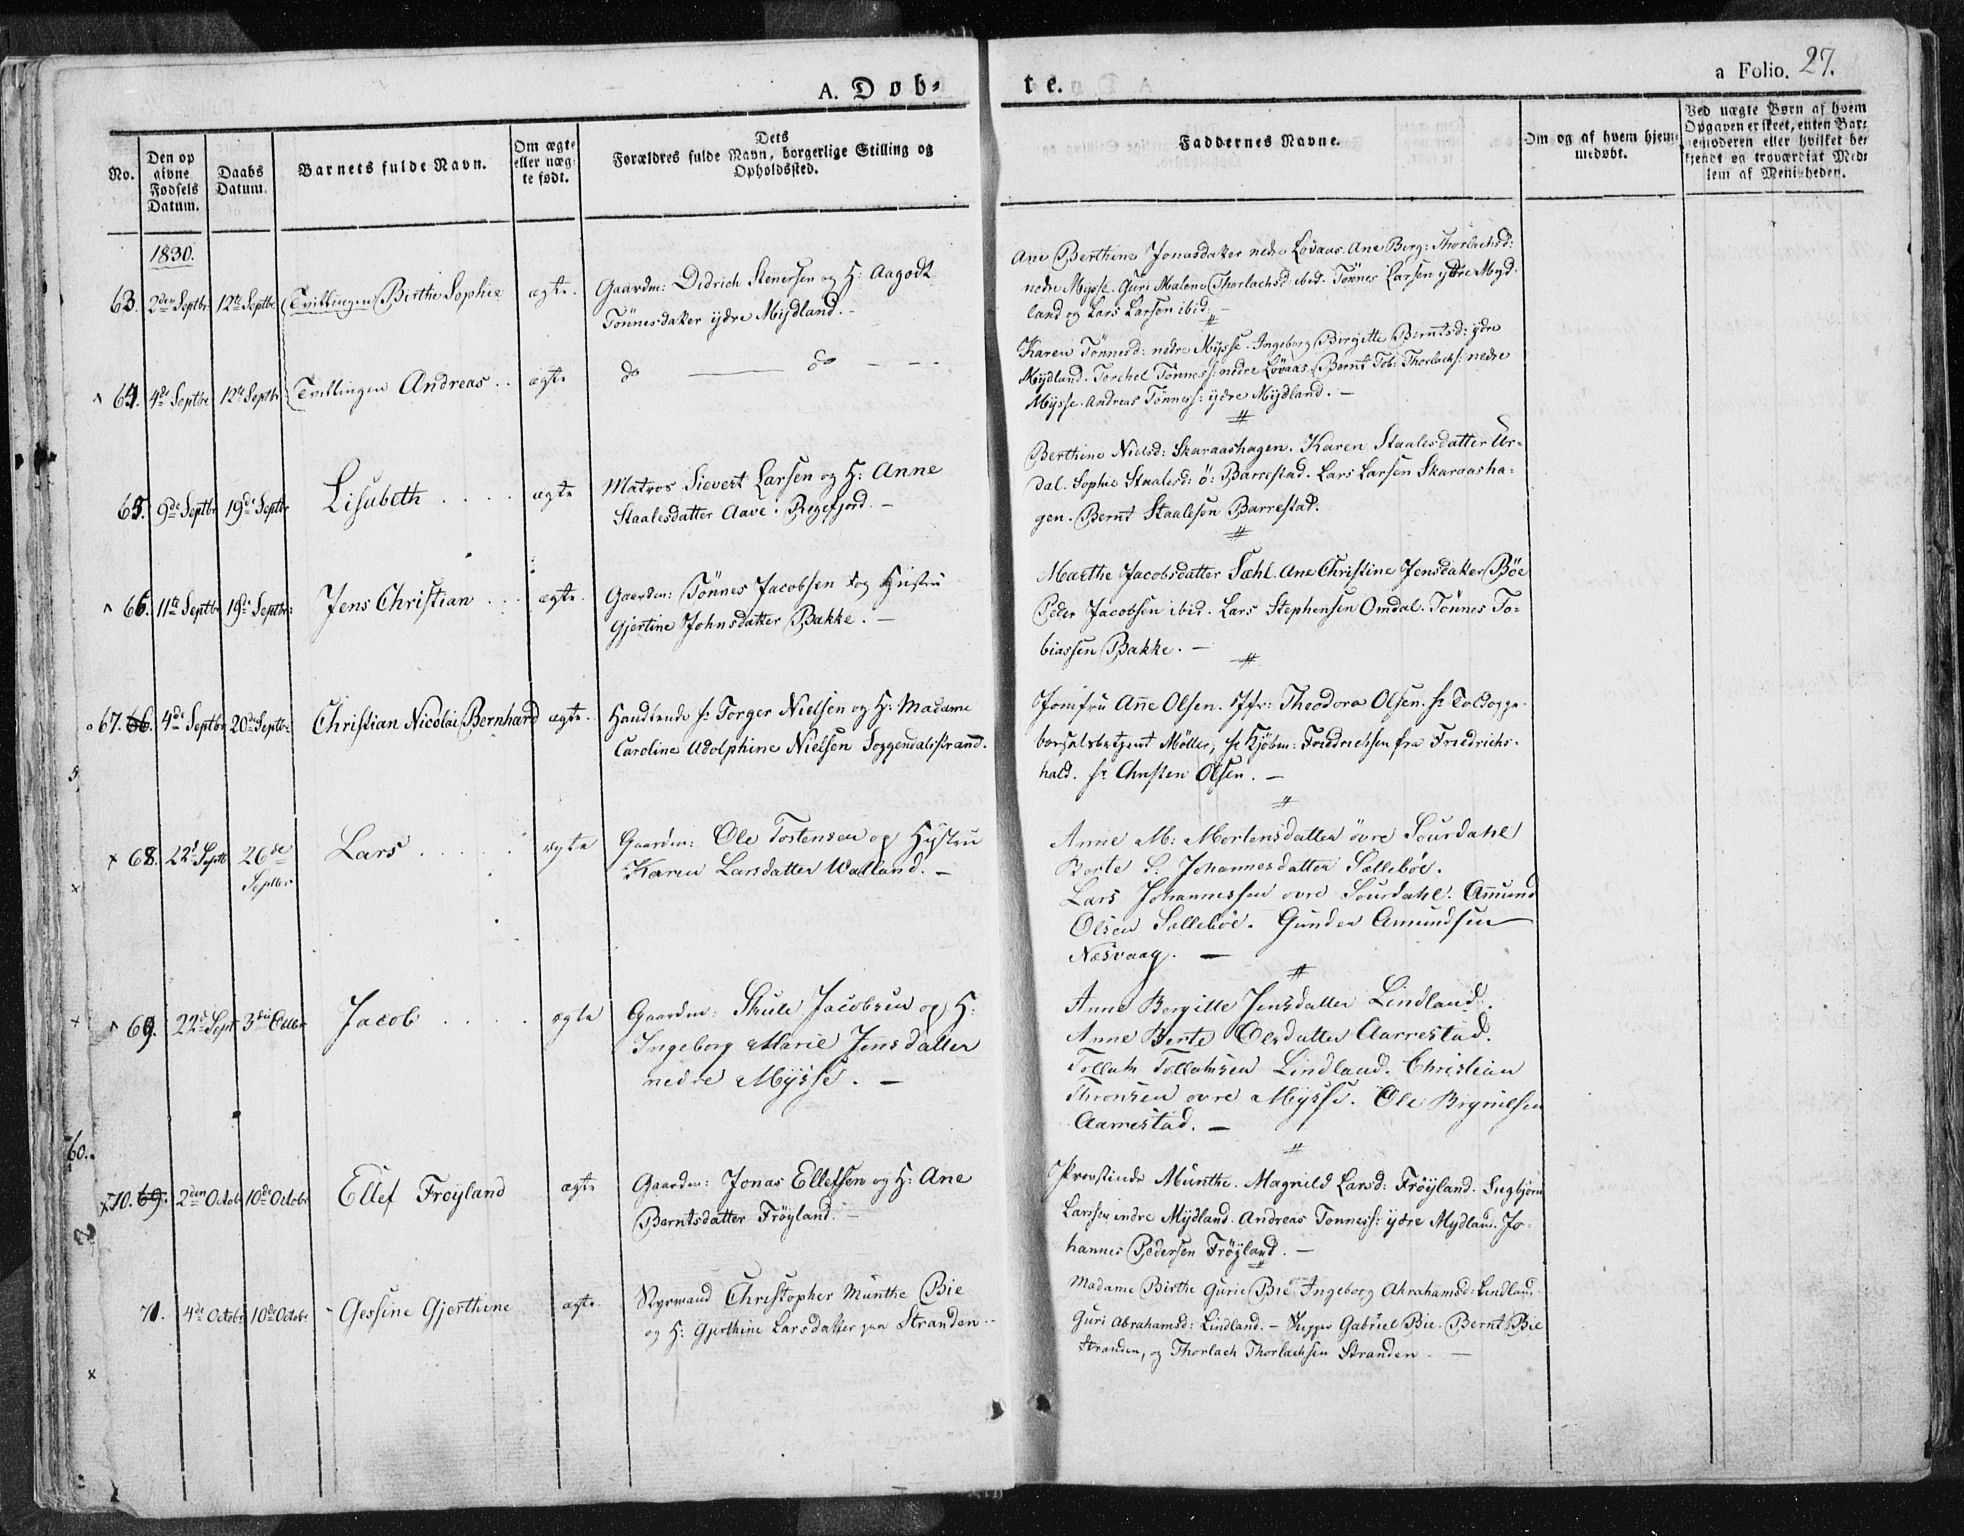 A. Døb-
te.
a Folio. 27.
No.
Den op
givne
Fødsels
Datum.
Daabs
Datum.
Barnets fulde Navn.
Om ægte
eller uæg-
te født.
Dets
Forældres fulde Navn, borgerlige Stilling og
Opholdssted.
Faddernes Navne.
Om og af hvem hjem-
medøbt.
Ved uægte Børn af hvem
Opgaven er skeet, enten Bar-
nemoderen eller hvilket be-
kjendt og troværdigt Med-
lem af Menigheden.
1830.
63. 2den Septbr 12te Septbr Tvillingen Birthe Sophie ægte.
Gaardm: Didrich Stenersen og H: Aagodt
Tönnesdatter ydre Mydland. -
Ane Berthine Jonasdatter nedre Løvaas. Ane Berg: Thorlachsd:
nedre Mysse. Guri Malene Thorlachsd. ibid. Tønnes Larsen ydre Myd-
land og Lars Larsen ibid. -
64. 4de Septbr 12te Septbr Tvillingen Andreas . . ægte
do ——— do — — -
Karen Tönnesd: nedre Mysse. Ingeborg Birgitte Berntsd: ydre
Mydland. Torchel Tönness: nedre Løvaas. Bernt Tob: Thorlachs: nedre
Mysse. Andreas Tönness: ydre Mydland. —
65. 9de Septbr 19de Septbr Lisabeth . . . . ægte
Matros Sievert Larsen og H: Anne
Staalesdatter Aave i Regefjord. -
Berthine Nielsd: Skaraashagen. Karen Staalesdatter Ur-
dal. Sophie Staalesd: ö: Barrestad. Lars Larsen Skaraasha-
gen. Bernt Staalesön Barrestad.
66. 11te Septbr 19de Septbr: Jens Christian . . . ægte.
Gaardm: Tönnes Jacobsen og Hustru
Gjertine Johnsdatter Bakke. —
Marthe Jacobsdatter Sæhl. Ane Christine Jensdatter Böe
Peder Jacobsen ibid. Lars Stephensen Omdal. Tönnes To-
biassen Bakke. —
67. 66. 4de Septbr 20de Septbr: Christian Nicolai Bernhard ægte.
Handlende Hr Torger Nielsen og H: Madame
Caroline Adolphine Nielsen Soggendalsstrand.
Jomfru Anne Olsen. Jfr: Theodora Olsen. Hr Toldoppe-
börselsbetjent Möller, Hr Kjöbm: Friedrichsen fra Friedrichs-
hald. Hr Christen Olsen. —
68. 22de Septb 26de
Septbr
Lars . . . . . ægte
Gaardm: Ole Tostensen og Hustru
Karen Larsdatter Watland. —
Anne M: Mortensdatter övre Sourdahl
Berte S. Johannesdatter Sællebøe.
Lars Johannessen övre Sourdahl. Amund
Olsen Sællebøe. Gunder Amundsen
Næsvaag. —
69. 22de Sept 3die Octbr Jacob . . . . ægte
Gaardm: Skule Jacobsen og H:
Ingeborg Marie Jensdatter
nedre Mysse. —
Anne Bergitte Jensdatter Lindland.
Anne Berte Olsdatter Aarrestad.
Tollak Tollaksen Lindland. Christian
Thronsen övre Mysse. Ole Brynielsen
Aarrestad. —
70. 69. 2den Octobr 10de Octobr Ellef Fröyland ægte
Gaardm: Jonas Ellefsen og H: Ane
Berntsdatter Fröyland. —
Provstinde Munthe. Magnild Larsd: Fröyland. Sugbjörn
Larssen indre Mydland. Andreas Tonness: ydre Mydland. Jo-
hannes Pedersen Fröyland. —
71. 4de Octobr 10de Octobr - Gessine Gjerthine ægte
Styrmand Christopher Munthe Bie
og H: Gjerthine Larsdatter paa Stranden. -
Madame Birthe Gurie Bie. Ingeborg Abrahamsd: Lindland
Guri Abrahamsd: Lindland. — Skipper Gabriel Bie. Bernt Bie
Stranden, og Thorlach Thorlachsen Stranden. —
60.